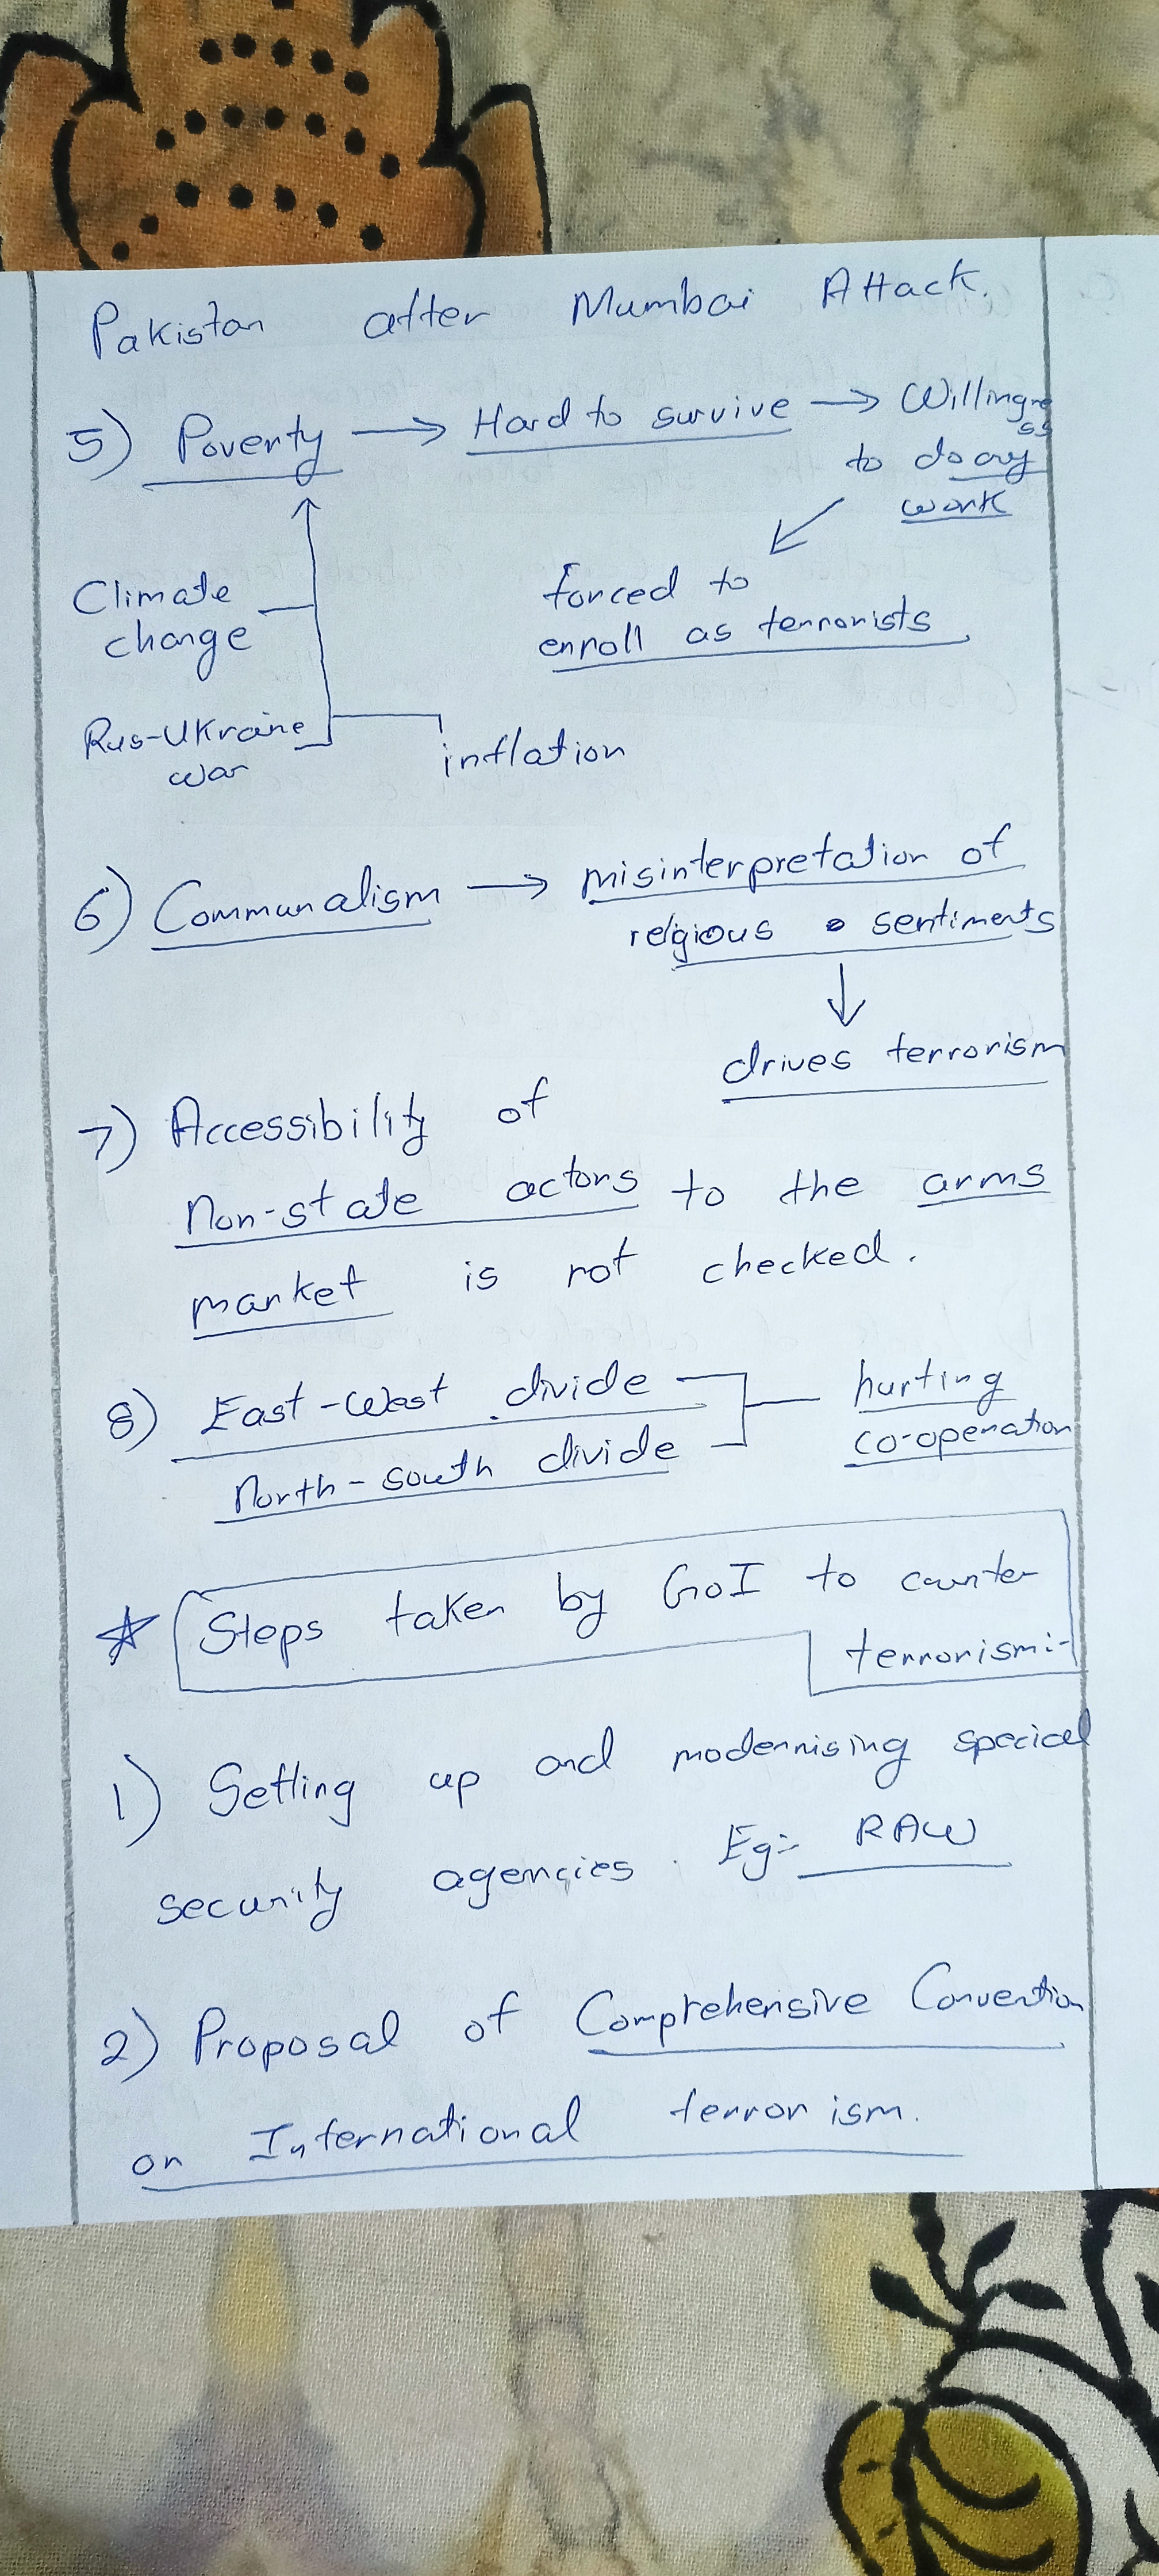 Pakistan after Mumbai Attack.
5) Poverty → Hard to survive → Willingness
to do any
work
forced to
enroll as terrorists
Climate
change
Rus-Ukraine
war
inflation
6) Communalism → misinterpretation of
relgious sentiments
↓
drives terrorism
7) Accessibility of
Non-state actors to the arms
market is not checked.
8) East-West divide
North-south divide
hurting
co-operation
☆ Steps taken by GoI to counter
terrorism:-
1) Setting up and modernising special
security agencies. Eg:- RAW
2) Proposal of Comprehensive Convention
on International terrorism.